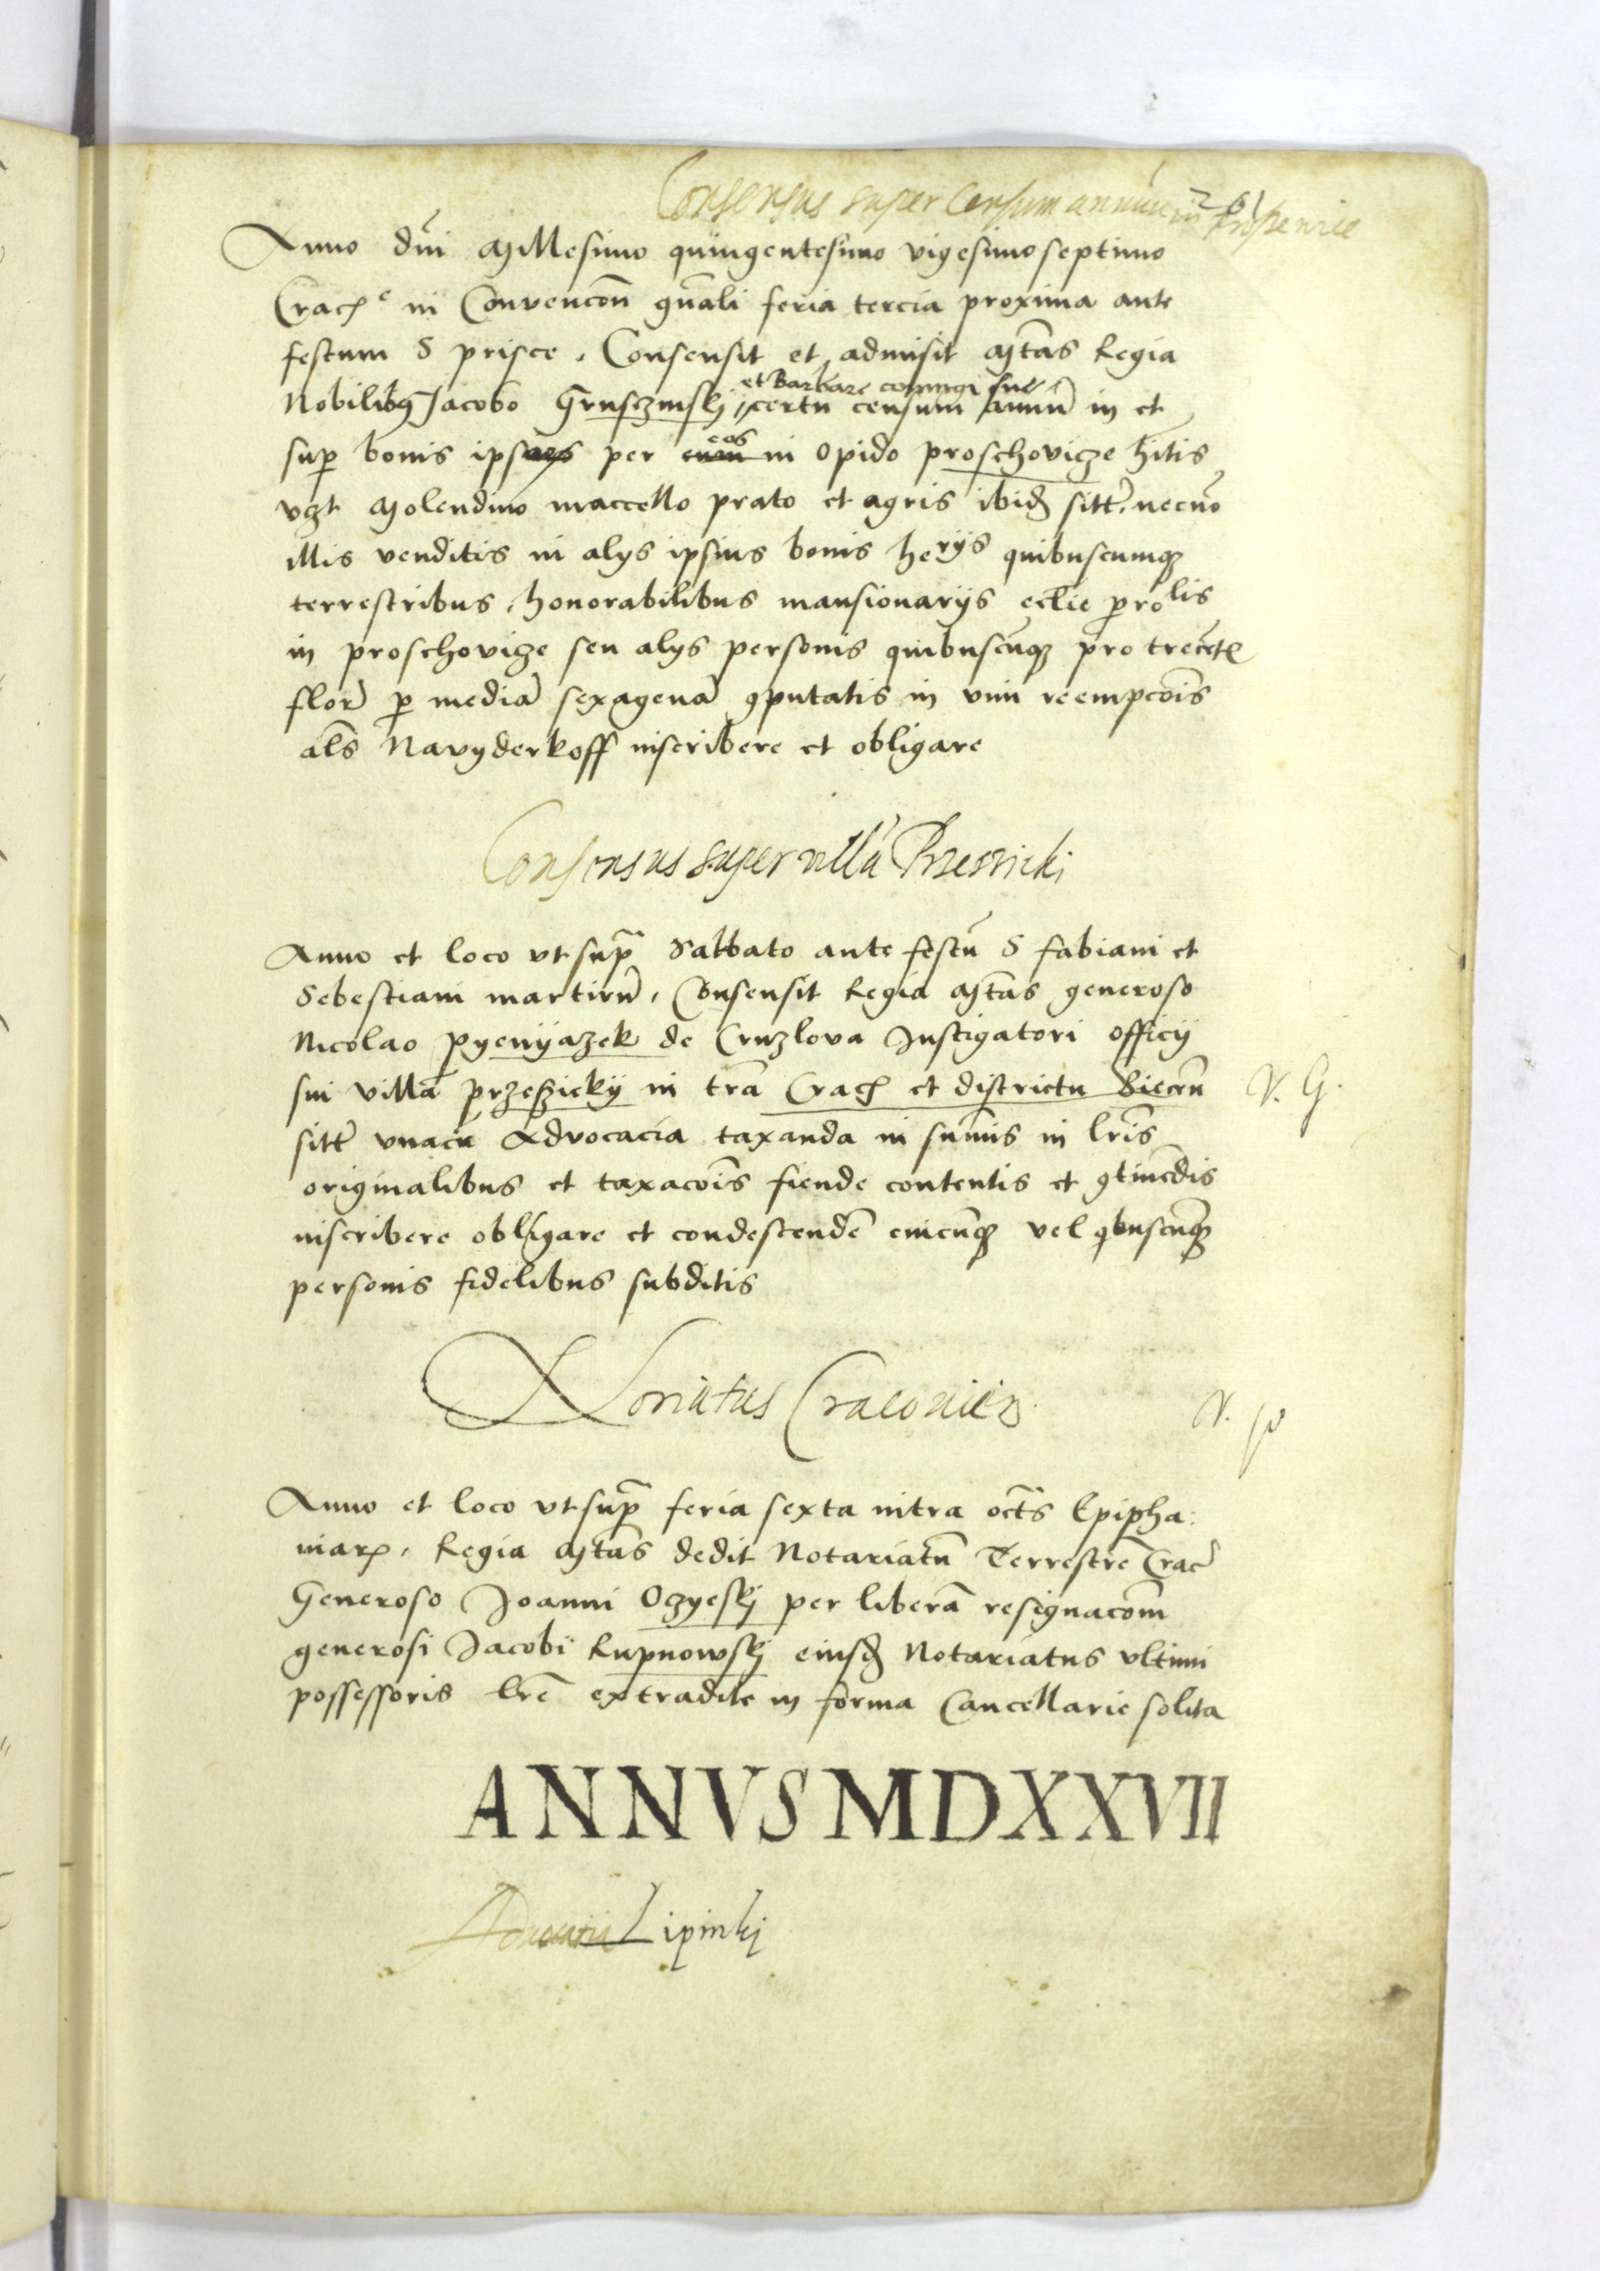 Consensus super Censum annuũ in
261
Anno dñi Millesimo quingentesimo vigesimoseptimo
Crac͠ in Convencoñ gñali feria tercia proxima ante
festum S prisce, Consensit et admisit Mtãs Regia
et Barbare coniugi sue
Nobilibus Jacobo Grusczinskj certũ censum annũ in et
eos
sup bonis ipsius per eum in Opido proschovicze hitis
vzt Molendino maccello prato et agris ibid sitt, necno
illis venditis in alys ipsius bonis herijs quibuscumq
terrestribus, honorabilibus mansionarijs eclie prolis
in proschovicze seu alys personis quibuscũq pro trecẽt
flor p mediã sexagenã 9putatis in vim reempcõis
als Navyderkoff inscribere et obligare
Consensus super villã Przessieki
Anno et loco vt supra Sabbato ante festũ S fabiani et
Sebestiani martirũ, Consensit Regia Mtãs generoso
Nicolao pyenyazek de Cruzlova Instigatori officij
sui villã przessieky in trã Crac͠ et districtu Biecẽn
V. G.
sitt vnacũ Advocacia taxanda in summis in lrĩs
originalibus et taxacoĩs fiende contentis et 9tinẽdis
inscribere obligare et condescendẽ cuicũq vel qbuscũq
personis fidelibus subditis
Noriatus Cracovien
V.
Anno et loco vt supra feria sexta intra octãs Epipha:
niar, Regia Mtãs dedit Notariatũ Terrestrẽ Crac
Generoso Joanni Oczyeskj per liberã resignacom̃
generosi Jacobi Rupnowskj eiusd Notariatus vltimi
possessoris lrẽ extradite in forma Cancellarie solita
ANNVS MDXXVII
Advocatia Lipinkj